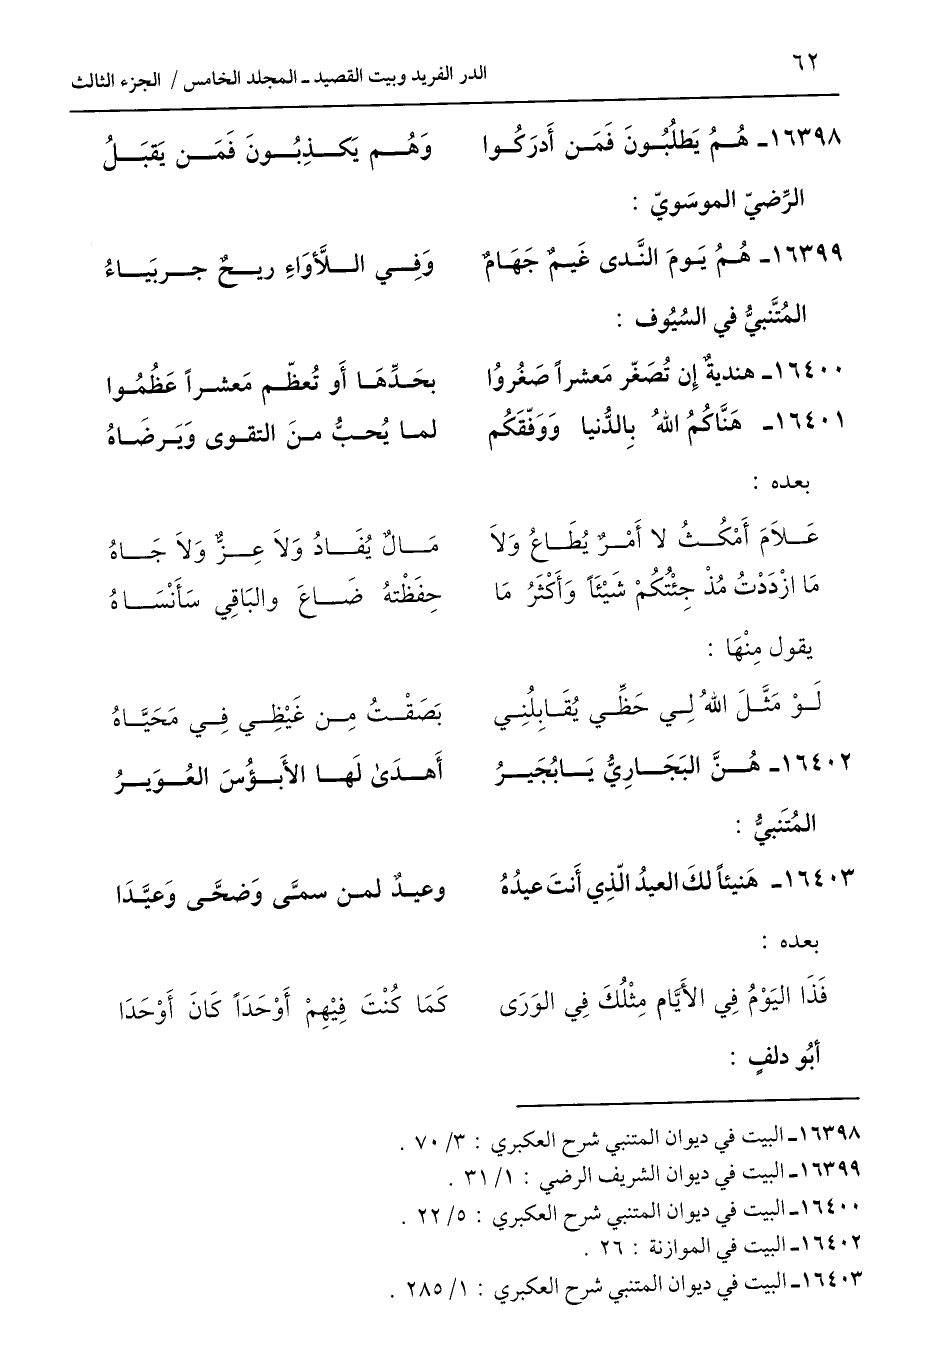 ٦٢
الدر الفريد وبيت القصيد ـ المجلد الخامس / الجزء الثالث
١٦٣٩٨ـ هُـمُ يَطلُبُـونَ فَمَـن أَدرَكُـوا وَهُـم يَكـذِبُـونَ فَمَـن يَقبَـلُ
الرِّضيّ الموسَويّ :
١٦٣٩٩ـ هُمُ يَومَ النَّدى غَيمٌ جَهَامٌ وَفِي اللَّأوَاءِ ريحٌ جربيَاءُ
المُتَّنبيُّ في السُيُوف :
١٦٤٠٠ـ هنديةٌ إن تُصَغّر مَعشراً صَغُروُا بحَدِّهَا أو تُعظّم مَعشراً عَظُمُوا
١٦٤٠١ـ هَنَّاكُمُ اللهُ بِالدُّنيا وَوَفّقَكُم لما يُحبُّ منَ التقوى وَيَرضَاهُ
بعده :
عَلاَمَ أَمْكُثُ لا أَمْرٌ يُطَاعُ وَلاَ مَالٌ يُفَادُ وَلاَ عِزٌّ وَلاَ جَاهُ
مَا ازْدَدْتُ مُذْ جِئْتُكُمْ شَيْئَاً وَأَكْثَرُ مَا حِفَظْتهُ ضَاعَ والبَاقِي سَأَنْسَاهُ
يقول مِنْهَا :
لَوْ مَثَّلَ اللهُ لِي حَظِّي يُقَابِلُنِي بَصَقْتُ مِن غَيْظِي فِي مَحَيَّاهُ
١٦٤٠٢ـ هُنَّ البَجَارِيُّ يَابُجَيرُ أهدَىٰ لَها الأبؤُسَ العُوَيرُ
المُتَنبيُّ :
١٦٤٠٣ـ هَنيئاً لكَ العيدُ الّذِي أنتَ عيدُهُ وعيدٌ لمن سمَّى وَضحَّى وَعيَّدَا
بعده :
فَذَا اليَوْمُ فِي الأَيَّامِ مِثْلُكَ فِي الوَرَى كَمَا كُنْتَ فِيْهِمْ أَوْحَدَاً كَانَ أَوْحَدَا
أبُو دلفٍ :
١٦٣٩٨ـ البيت في ديوان المتنبي شرح العكبري : ٣/ ٧٠ .
١٦٣٩٩ـ البيت في ديوان الشريف الرضي : ١/ ٣١ .
١٦٤٠٠ـ البيت في ديوان المتنبي شرح العكبري : ٥/ ٢٢ .
١٦٤٠٢ـ البيت في الموازنة : ٢٦ .
١٦٤٠٣ـ البيت في ديوان المتنبي شرح العكبري : ١/ ٢٨٥ .